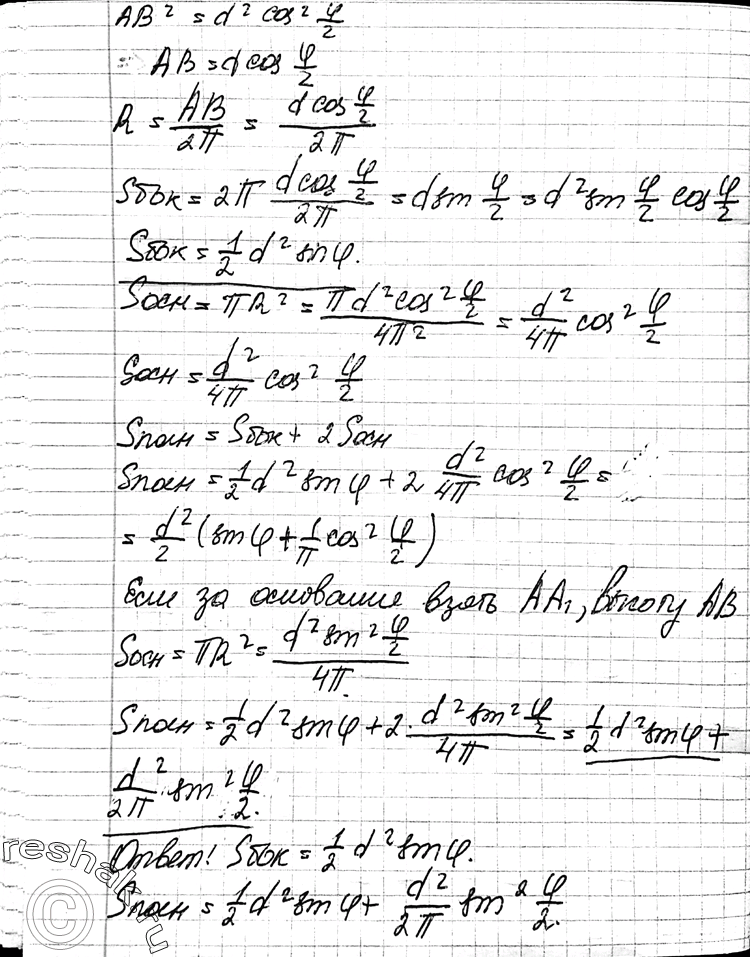 AB² = d² cos² φ/2
AB = d cos φ/2
R = AB/2π = (d cos φ/2)/2π
Sбок = 2π (d cos φ/2)/2π = d sin φ/2 = d² sin φ/2 cos φ/2
Sбок = 1/2 d² sin φ.
Sосн = πR² = (π d² cos² φ/2)/4π² = d²/4π cos² φ/2
Sосн = d²/4π cos² φ/2
Sполн = Sбок + 2 Sосн
Sполн = 1/2 d² sin φ + 2 d²/4π cos² φ/2 =
= d²/2 (sin φ + 1/π cos² φ/2)
Если за основание взять AA₁, высоту AB
Sосн = πR² = (d² sin² φ/2)/4π.
Sполн = 1/2 d² sin φ + 2 · (d² sin² φ/2)/4π = 1/2 d² sin φ +
d²/2π · sin² φ/2.
Ответ! Sбок = 1/2 d² sin φ.
Sполн = 1/2 d² sin φ + d²/2π sin² φ/2.
reshak.ru
©